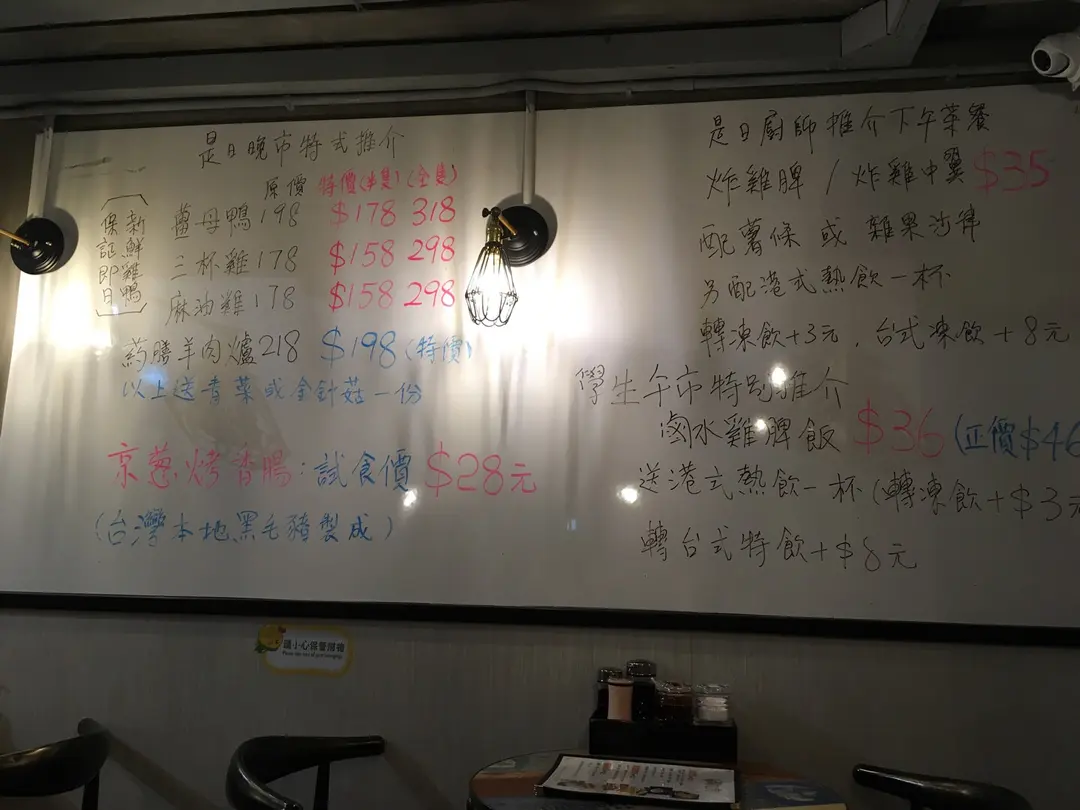 是日晚市特式推介
原價 特價(半隻) (全隻)
薑母鴨 198 $178 318
三杯雞 178 $158 298
麻油雞 178 $158 298
新鮮雞鴨
保証即日
葯膳羊肉爐 218 $198 (特價)
以上送青菜或金針菇一份
京蔥烤香腸:試食價 $28元
(台灣本地黑毛豬製成)
是日厨師推介下午茶餐
炸雞脾 / 炸雞中翼 $35
配薯條 或 雜果沙律
另配港式熱飲一杯
轉凍飲+3元, 台式凍飲+8元
學生午市特別推介
滷水雞脾飯 $36 (正價$46
送港式熱飲一杯(轉凍飲+$3元
轉台式特飲+$8元
請小心保管隨